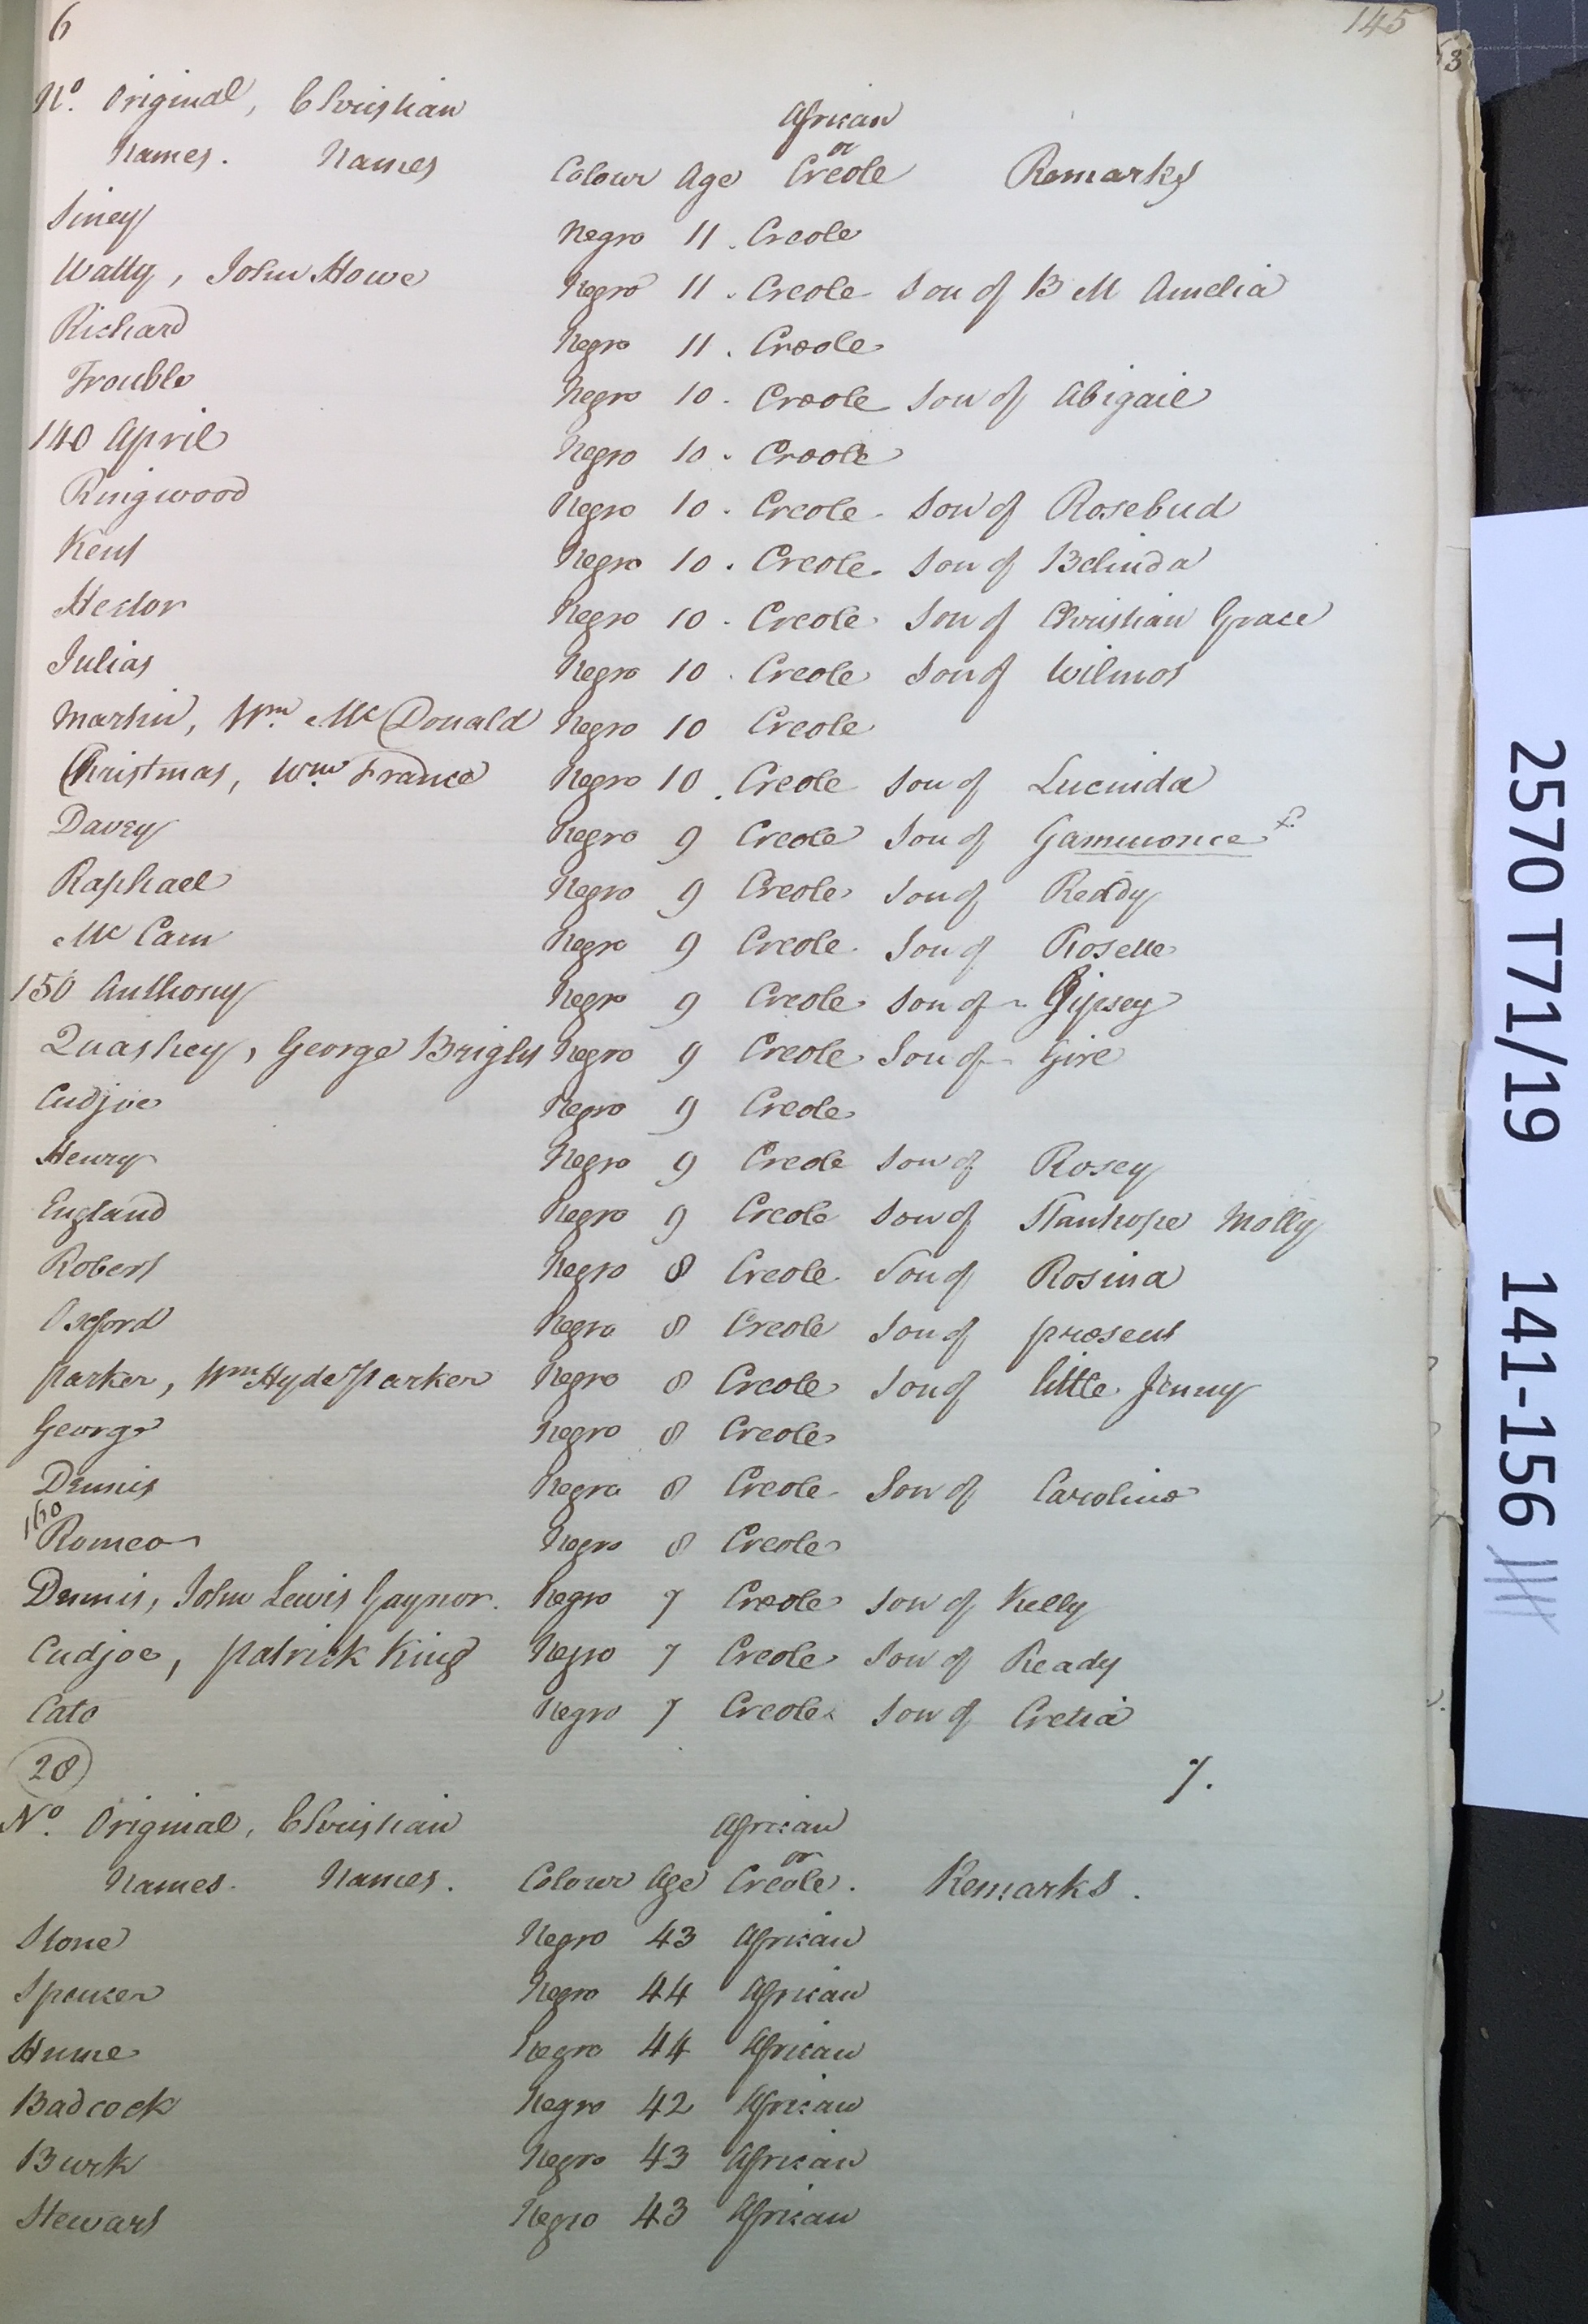 6 145
3
No. Original, Christian African
Names. Names Colour Age or Creole Remarks
Siney Negro 11. Creole
Wally, John Howe Negro 11. Creole Son of B M Amelia
Richard Negro 11. Creole
Trouble Negro 10. Creole Son of Abigail
140 April Negro 10. Creole
Ringwood Negro 10. Creole Son of Rosebud
Kent Negro 10. Creole Son of Belinda
Hector Negro 10. Creole Son of Christian Grace
Julias Negro 10. Creole Son of Wilmot
Martin, Wm. Mc Donald Negro 10 Creole
Christmas, Wm. France Negro 10. Creole Son of Lucinda
Davey Negro 9 Creole Son of Gammonce
Raphael Negro 9 Creole Son of Reddy
Mc Cam Negro 9 Creole Son of Rosette
150 Anthony Negro 9 Creole Son of Gipsey
Quashey, George Bright Negro 9 Creole Son of Give
Cudjoe Negro 9 Creole
Henry Negro 9 Creole Son of Rosey
England Negro 9 Creole Son of Stanhope Molly
Robert Negro 8 Creole Son of Rosina
Oxford Negro 8 Creole Son of present
Parker, Wm Hyde Parker Negro 8 Creole Son of little Jenny
George Negro 8 Creole
Dennis Negro 8 Creole Son of Caroline
160 Romeo Negro 8 Creole
Dennis, John Lewis Gaynor. Negro 7 Creole Son of Kelly
Cudjoe, Patrick King Negro 7 Creole Son of Ready
Cato Negro 7 Creole Son of Cretia
28 7.
No. Original, Christian African
Names. Names. Colour Age or Creole. Remarks.
Stone Negro 43 African
Spencer Negro 44 African
Hume Negro 44 African
Badcock Negro 42 African
Burk Negro 43 African
Stewart Negro 43 African
2570 T71/19 141-156